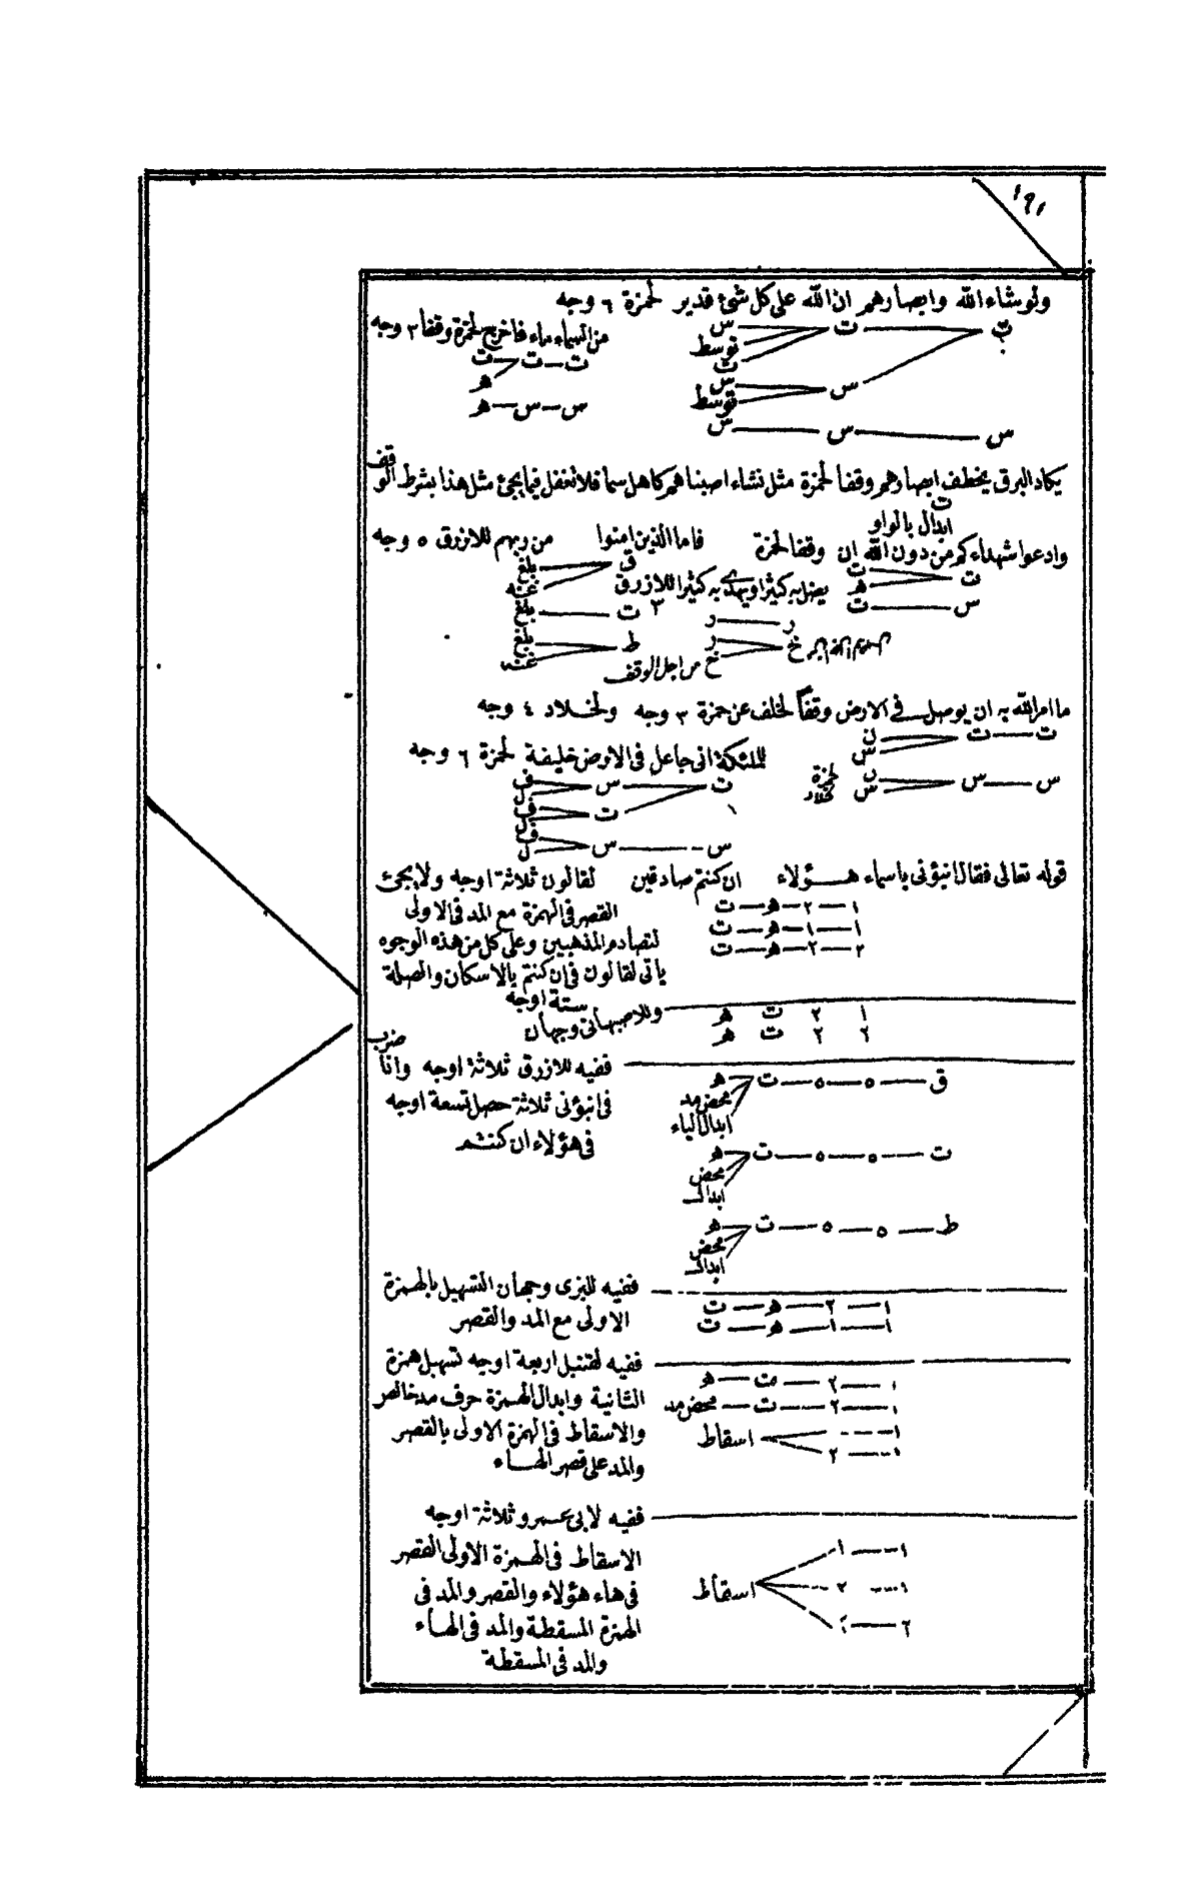 ١٩١
ولو شاء الله وابصارهم ان الله على كل شئ قدير لحمزة ٦ وجه
ت س
توسط
ت
س س
توسط
س س س
من السماء ماء فاخرج لحمزة وقفا ٣ وجه
ت ت ت
هـ
س س هـ
يكاد البرق يخطف ابصارهم وقفا لحمزة مثل نشاء اصبناهم كاهل سما فلا تغفل فيما يجئ مثل هذا بشرط الوقف
ت
ابدال بالواو
وادعوا شهداءكم من دون الله ان وقفا لحمزة فاما الذين امنوا من ربهم للازرق ٥ وجه
ت ت
هـ
س ت
ق بلغ
غنه
ت بلغ
ط بلغ
غنه
يضل به كثيرا ويهدى به كثيرا للازرق ٣
ر ر
خ ر
خ من اجل الوقف
ما امر الله به ان يوصل فى الارض وقفا لخلف عن حمزة ٣ وجه ولخلاد ٤ وجه
ت ت ن
س
س س ن لحمزة
س لخلاد
للملئكة انى جاعل فى الارض خليفة لحمزة ٦ وجه
ت س ف
ل
١ ت ف
ل
س س ف
ل
قوله تعالى فقال انبؤنى باسماء هؤلاء ان كنتم صادقين لقالون ثلاثة اوجه ولا يجئ
١ ٢ هـ ت
١ ١ هـ ت
٢ ٢ هـ ت
القصر فى الهمزة مع المد فى الاولى
لتصادم المذهبين وعلى كل من هذه الوجوه
ياتى لقالون فى ان كنتم بالاسكان والصلة
ستة اوجه
وللاصبهانى وجهان
١ ٢ ت هـ
٢ ٢ ت هـ
ففيه للازرق ثلاثة اوجه واذا ضرب
فى انبؤنى ثلاثة حصل تسعة اوجه
فى هؤلاء ان كنتم
ق ٥ ٥ ت هـ
محض مد
ابدال الياء
ت ٥ ٥ ت هـ
محض
ابدال
ط ٥ ٥ ت هـ
محض
ابدال
ففيه للبزى وجهان التسهيل بالهمزة
الاولى مع المد والقصر
١ ٢ هـ ت
١ ١ هـ ت
ففيه لقنبل اربعة اوجه تسهيل همزة
الثانية وابدال الهمزة حرف مد خالص
والاسقاط فى الهمزة الاولى بالقصر
والمد على قصر الهاء
١ ٢ ت هـ
١ ٢ ت محض مد
١ ١ اسقاط
١ ٢
ففيه لابى عمرو ثلاثة اوجه
الاسقاط فى الهمزة الاولى القصر
فى هاء هؤلاء والقصر والمد فى
الهمزة المسقطة والمد فى الهاء
والمد فى المسقطة
١ ١
١ ٢ اسقاط
٢ ٢